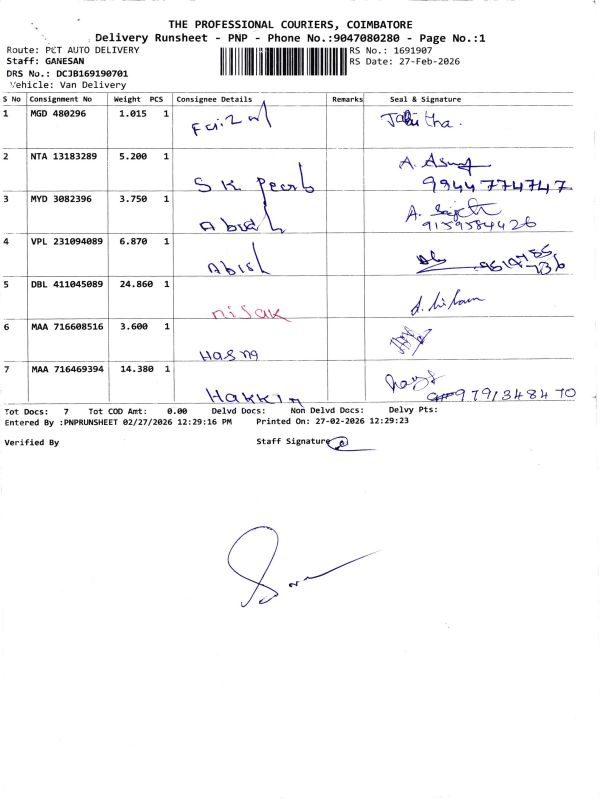 THE PROFESSIONAL COURIERS, COIMBATORE
Delivery Runsheet - PNP - Phone No.:9047080280 - Page No.:1
Route: PCT AUTO DELIVERY RS No.: 1691907
Staff: GANESAN RS Date: 27-Feb-2026
DRS No.: DCJB169190701
Vehicle: Van Delivery
S No Consignment No Weight PCS Consignee Details Remarks Seal & Signature
1 MGD 480296 1.015 1 Faizal
2 NTA 13183289 5.200 1 SK Pearl A. 9944774747
3 MYD 3082396 3.750 1 A. 9159584426
4 VPL 231094089 6.870 1
5 DBL 411045089 24.860 1 nisak
6 MAA 716608516 3.600 1 Hasna
7 MAA 716469394 14.380 1 Hakkim 9791348470
Tot Docs: 7 Tot COD Amt: 0.00 Delvd Docs: Non Delvd Docs: Delvy Pts:
Entered By :PNPRUNSHEET 02/27/2026 12:29:16 PM Printed On: 27-02-2026 12:29:23
Verified By Staff Signature